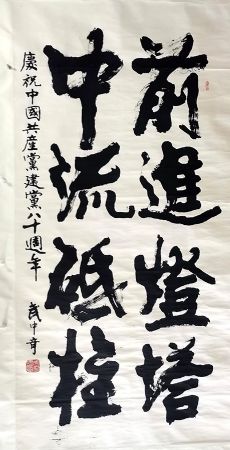 前進燈塔
中流砥柱
慶祝中國共産黨建黨八十週年
武中奇